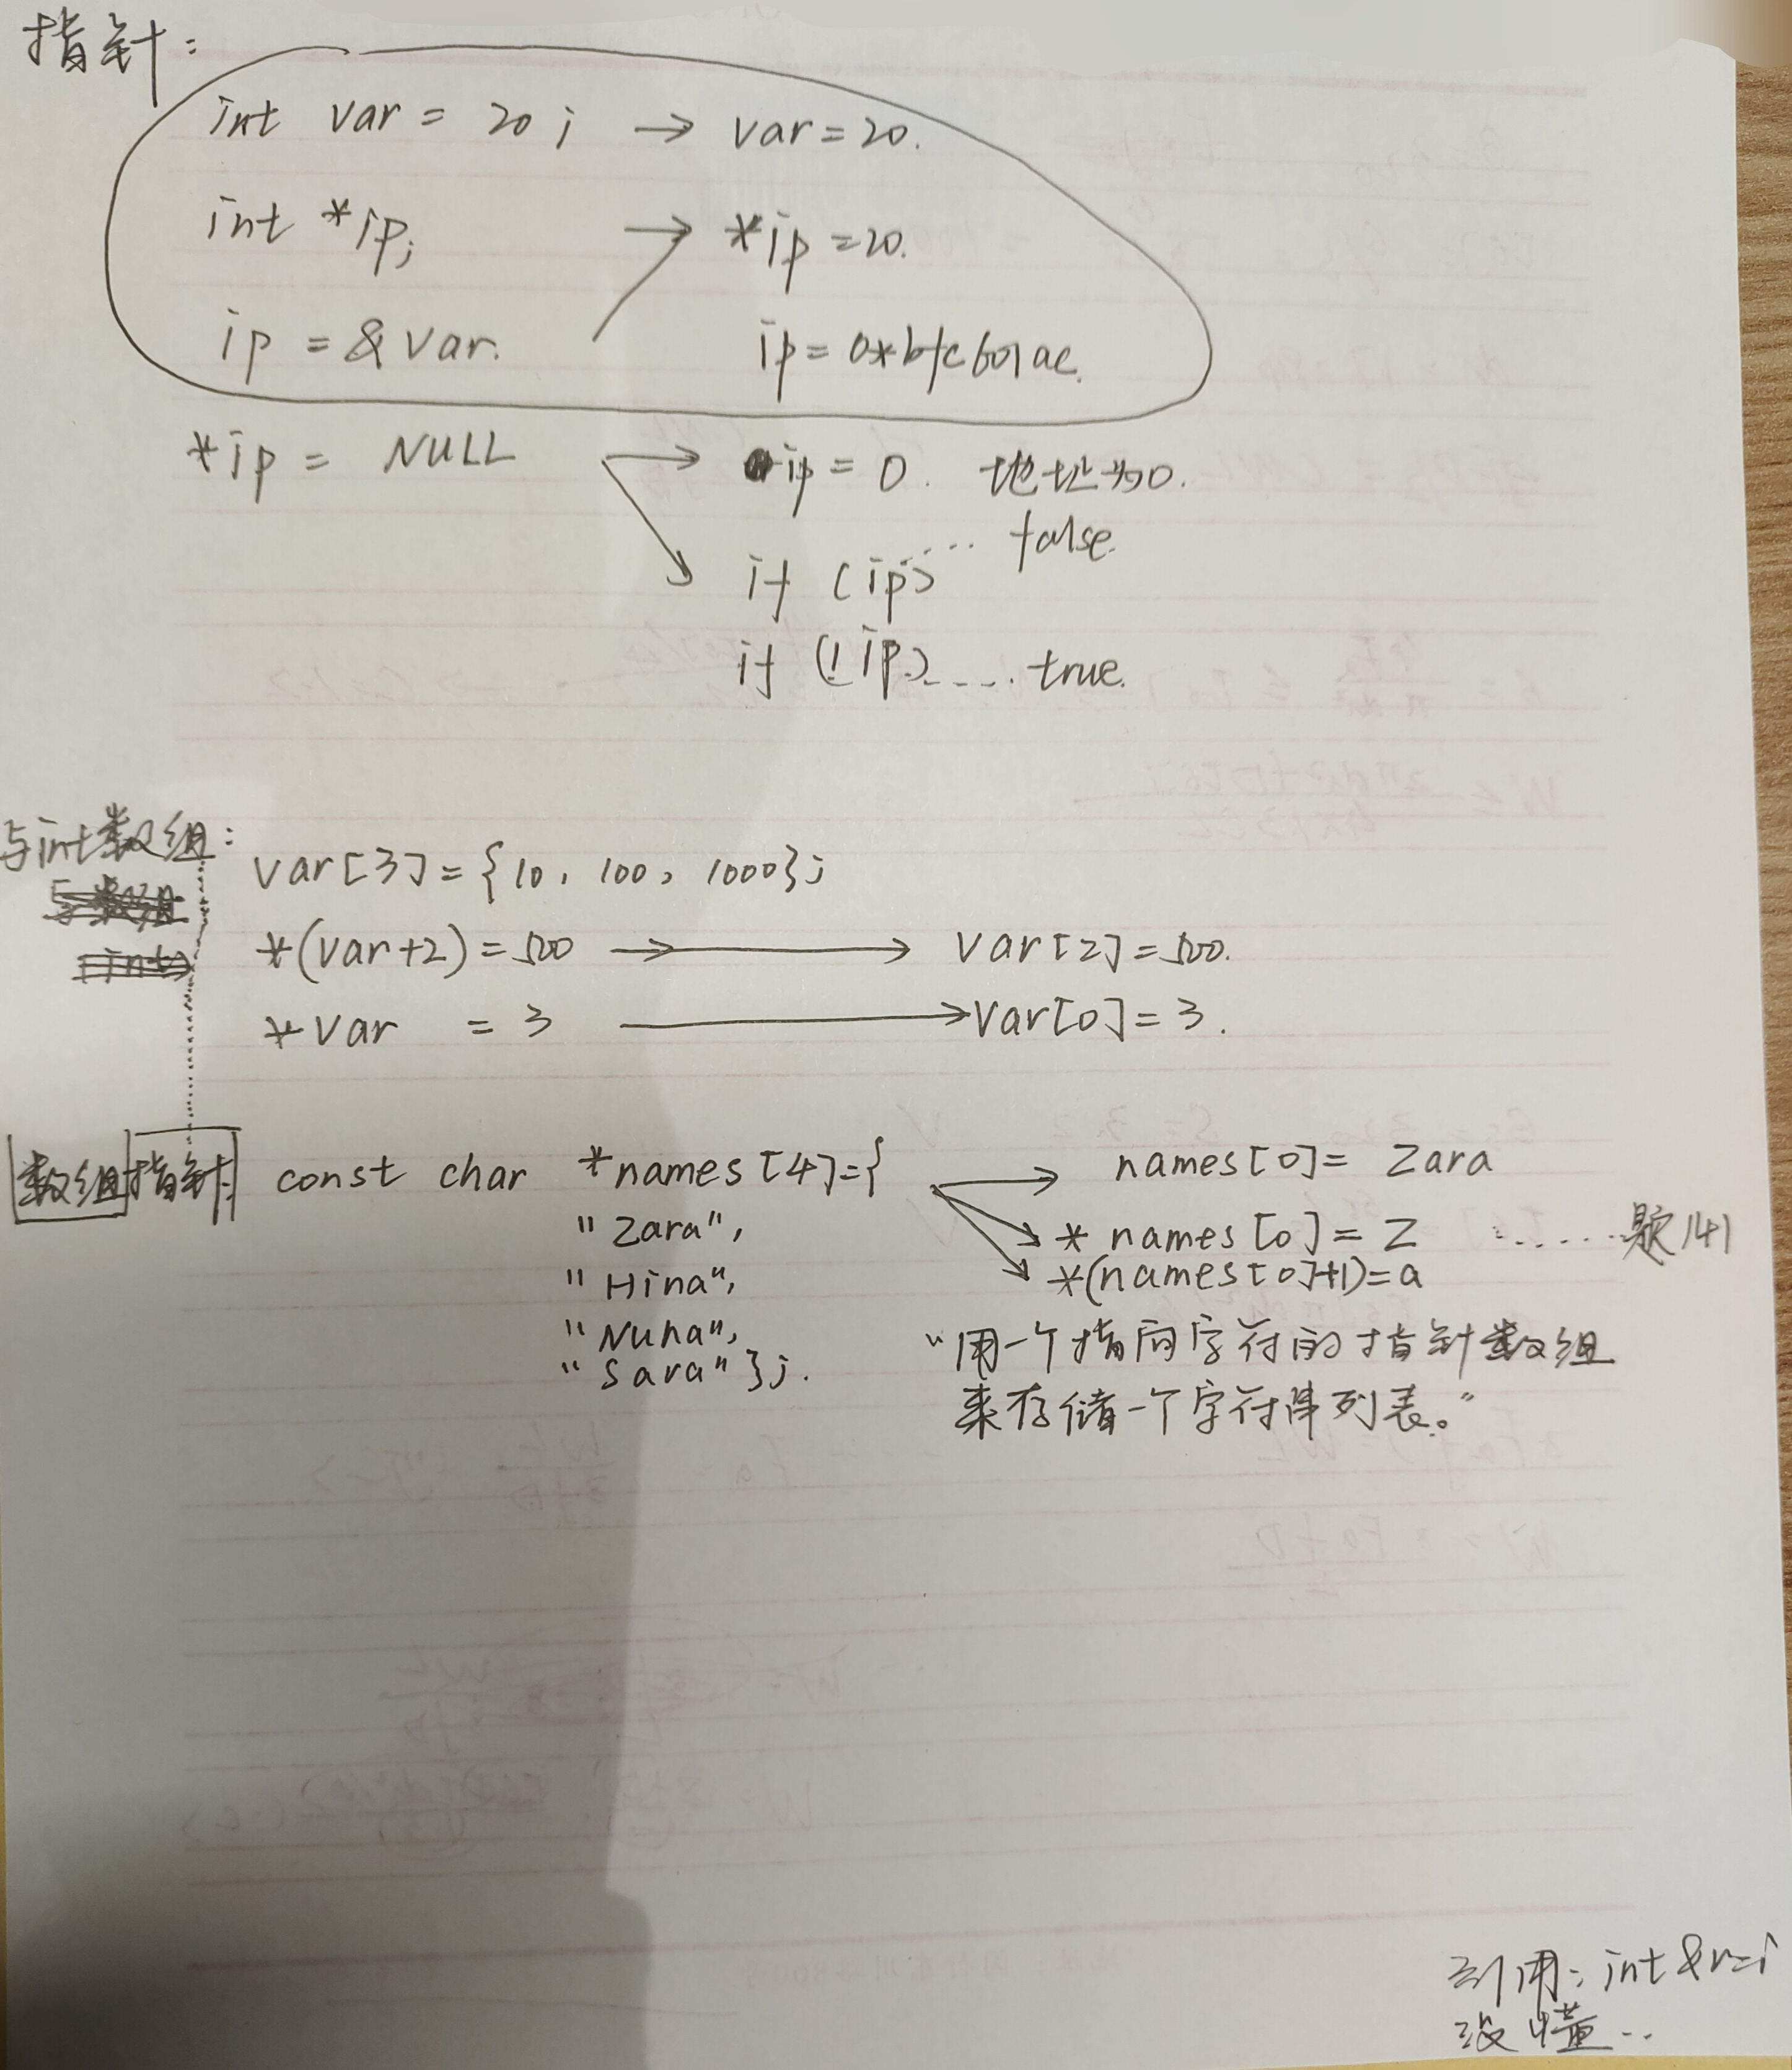 指针:
int var = 20; → var=20.
int *ip; → *ip=20.
ip = &var. ip=0xbfc601ac.
*ip = NULL → ip=0. 地址为0.
if (ip) ..... false.
if (!ip) ..... true.
与int数组:
var[3]={10, 100, 1000};
*(var+2)=500 → var[2]=500.
*var = 3 → var[0]=3.
数组指针: const char *names[4]={ → names[0]= Zara
"Zara", * names[0]= Z ......题141
"Hina", *(names[0]+1)=a
"Nuha", "用一个指向字符的指针数组
"Sara"}; 来存储一个字符串列表。"
引用: int &r=i
没懂...